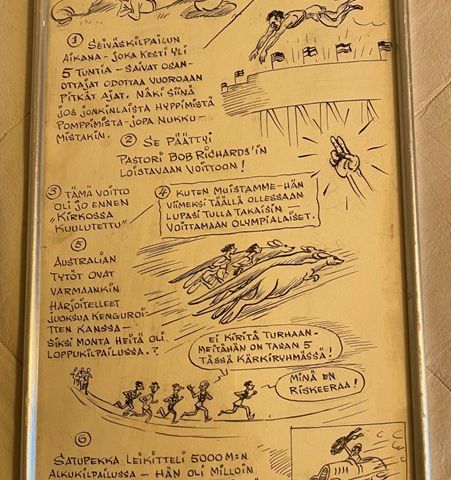 ① SEIVÄSKILPAILUN
AIKANA – JOKA KESTI YLI
5 TUNTIA – SAIVAT OSAN-
OTTAJAT ODOTTAA VUOROAAN
PITKÄT AJAT. NÄKI SIINÄ
JOS JONKINLAISTA HYPPIMISTÄ
POMPPIMISTA – JOPA NUKKU-
MISTAKIN.
② SE PÄÄTTYI
PASTORI BOB RICHARDS'IN
LOISTAVAAN VOITTOON!
③ TÄMÄ VOITTO
OLI JO ENNEN
„KIRKOSSA
KUULUTETTU"
④ KUTEN MUISTAMME – HÄN
VIIMEKSI TÄÄLLÄ OLLESSAAN
LUPASI TULLA TAKAISIN
VOITTAMAAN OLYMPIALAISET.
⑤
AUSTRALIAN
TYTÖT OVAT
VARMAANKIN
HARJOITELLEET
JUOKSUA KENGUROI-
TTEN KANSSA –
SIKSI MONTA HEITÄ OLI
LOPPUKILPAILUSSA.?
EI KIRITÄ TURHAAN –
MEITÄHÄN ON TASAN 5
TÄSSÄ KÄRKIRYHMÄSSÄ!
MINÄ EN
RISKEERAA!
⑥
SATUPEKKA LEIKITTELI 5000 M:N
ALKUKILPAILUSSA – HÄN OLI MILLOIN